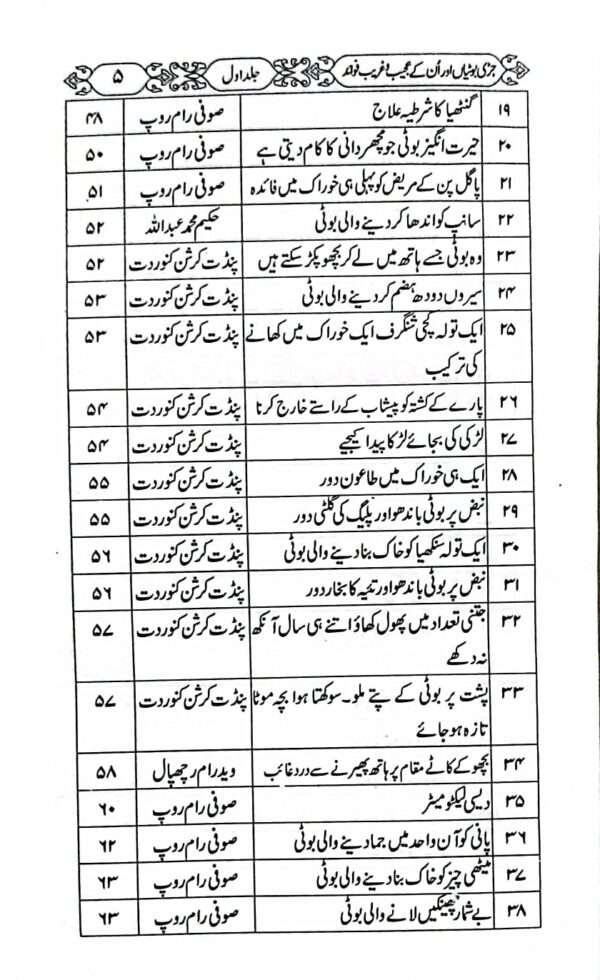 جڑی بوٹیاں اور اُن کے عجیب و غریب فوائد جلد اول ۵
۱۹ گنٹھیا کا شرطیہ علاج صوفی رام روپ ۴۸
۲۰ حیرت انگیز بوٹی جو مچھر دانی کا کام دیتی ہے صوفی رام روپ ۵۰
۲۱ پاگل پن کے مریض کو پہلی ہی خوراک میں فائدہ صوفی رام روپ ۵۱
۲۲ سانپ کو اندھا کر دینے والی بوٹی حکیم محمد عبداللہ ۵۲
۲۳ وہ بوٹی جسے ہاتھ میں لے کر بچھو پکڑ سکتے ہیں پنڈت کرشن کنور دت ۵۲
۲۴ سیروں دودھ ہضم کر دینے والی بوٹی پنڈت کرشن کنور دت ۵۳
۲۵ ایک تولہ کچی شنگرف ایک خوراک میں کھانے پنڈت کرشن کنور دت ۵۳
کی ترکیب
۲۶ پارے کے کشتہ کو پیشاب کے راستے خارج کرنا پنڈت کرشن کنور دت ۵۴
۲۷ لڑکی کی بجائے لڑکا پیدا کیجیے پنڈت کرشن کنور دت ۵۴
۲۸ ایک ہی خوراک میں طاعون دور پنڈت کرشن کنور دت ۵۵
۲۹ نبض پر بوٹی باندھو اور پلیگ کی گلٹی دور پنڈت کرشن کنور دت ۵۵
۳۰ ایک تولہ سنکھیا کو خاک بنا دینے والی بوٹی پنڈت کرشن کنور دت ۵۶
۳۱ نبض پر بوٹی باندھو اور تئیہ کا بخار دور پنڈت کرشن کنور دت ۵۶
۳۲ جتنی تعداد میں پھول کھاؤ اتنے ہی سال آنکھ پنڈت کرشن کنور دت ۵۷
نہ دکھے
۳۳ پشت پر بوٹی کے پتے ملو۔ سوکھتا ہوا بچہ موٹا پنڈت کرشن کنور دت ۵۷
تازہ ہو جائے
۳۴ بچھو کے کاٹے مقام پر ہاتھ پھیرنے سے درد غائب وید رام رچھپال ۵۸
۳۵ دیسی لیکٹو میٹر صوفی رام روپ ۶۰
۳۶ پانی کو آن واحد میں جما دینے والی بوٹی صوفی رام روپ ۶۲
۳۷ میٹھی چیز کو خاک بنا دینے والی بوٹی صوفی رام روپ ۶۳
۳۸ بے شمار چھینکیں لانے والی بوٹی صوفی رام روپ ۶۳